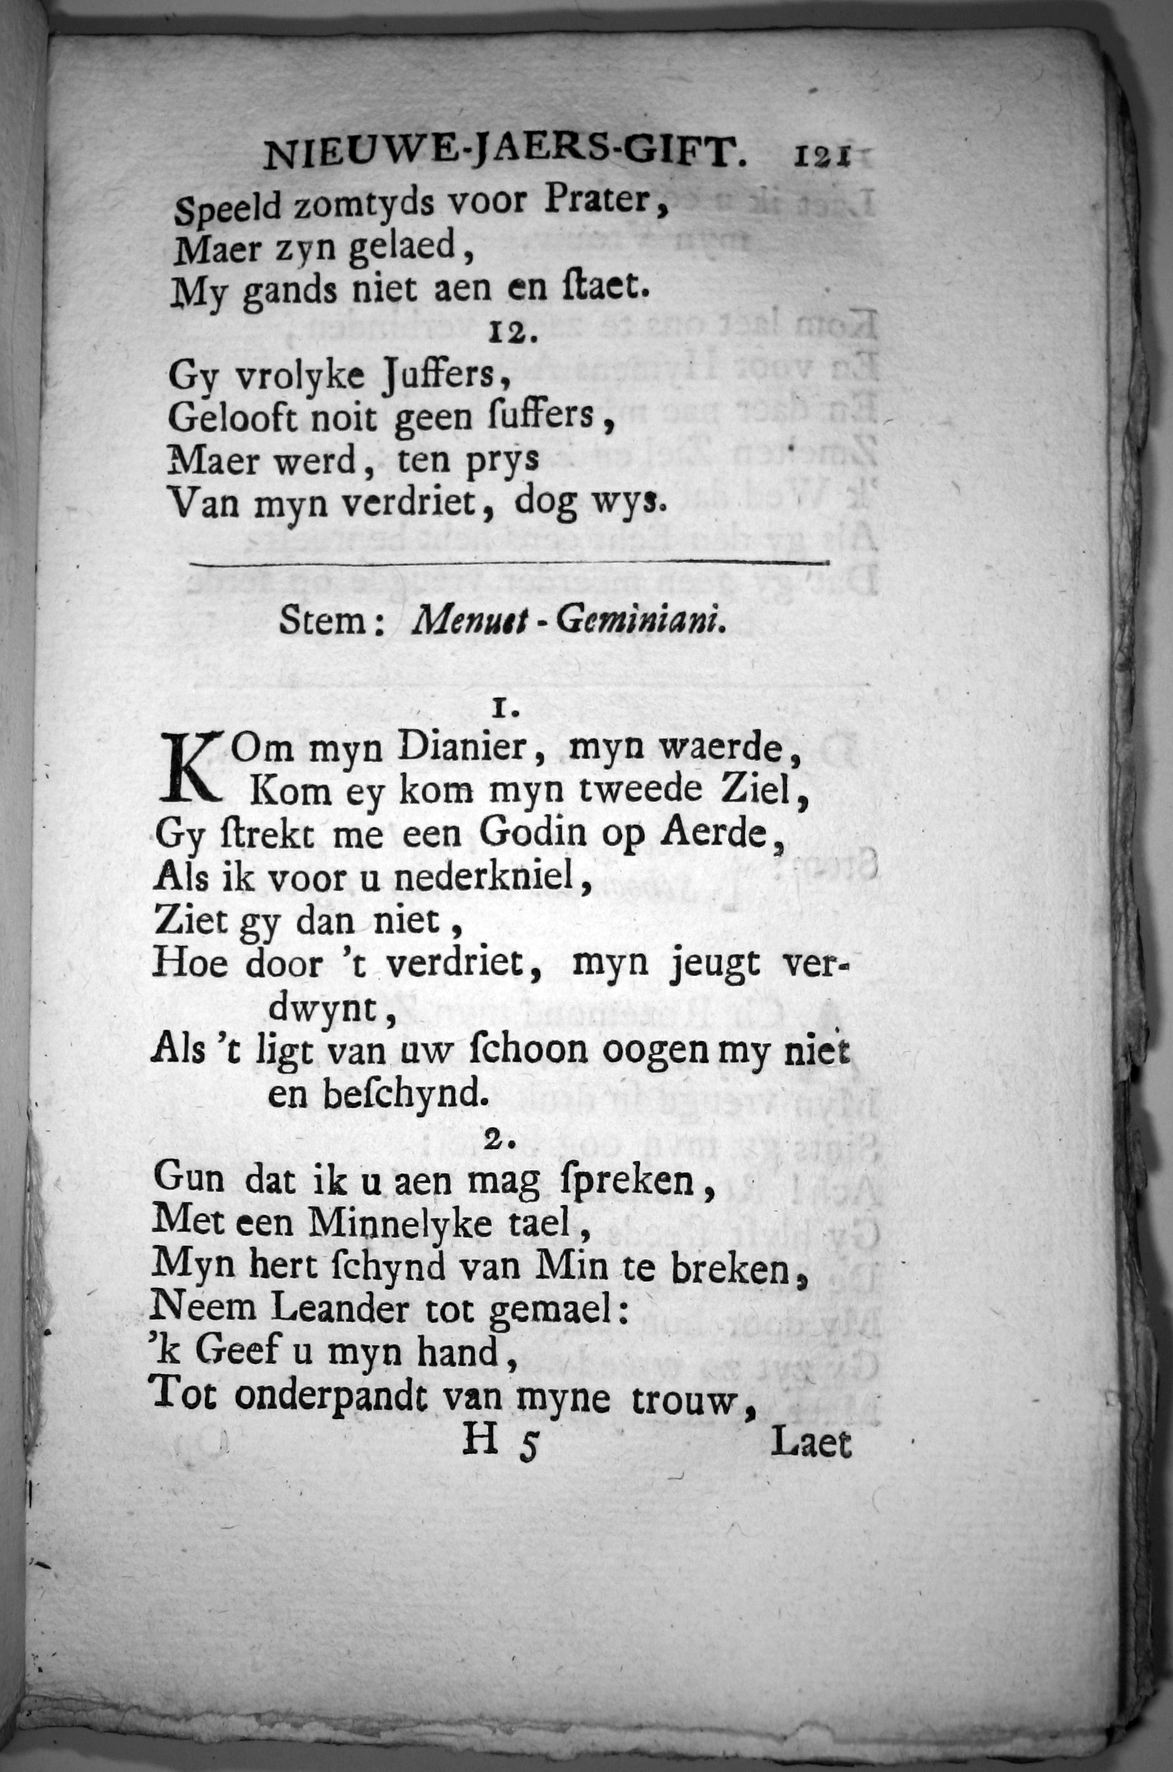 NIEUWE-JAERS-GIFT. 121
Speeld zomtyds voor Prater,
Maer zyn gelaed,
My gands niet aen en ſtaet.
12.
Gy vrolyke Juffers,
Gelooft noit geen ſuffers,
Maer werd, ten prys
Van myn verdriet, dog wys.
Stem: Menuet-Geminiani.
1.
KOm myn Dianier, myn waerde,
Kom ey kom myn tweede Ziel,
Gy ſtrekt me een Godin op Aerde,
Als ik voor u nederkniel,
Ziet gy dan niet,
Hoe door 't verdriet, myn jeugt ver-
dwynt,
Als 't ligt van uw ſchoon oogen my niet
en beſchynd.
2.
Gun dat ik u aen mag ſpreken,
Met een Minnelyke tael,
Myn hert ſchynd van Min te breken,
Neem Leander tot gemael:
'k Geef u myn hand,
Tot onderpandt van myne trouw,
H 5 Laet